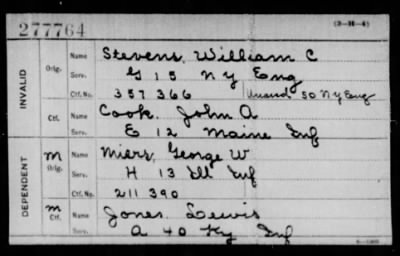 277764 (3-H-4)
INVALID
Orig. Name Stevens, William C
Serv. G 15 N Y Eng
Ctf. No. 357 366 Unassd 50 N Y Eng
Ctf. Name Cook, John A
Serv. E 12 Maine Inf
DEPENDENT
M Orig. Name Miers, George W
Serv. H 13 Ill Inf
Ctf. No. 211 390
M Ctf. Name Jones, Lewis
Serv. A 40 Ky Inf